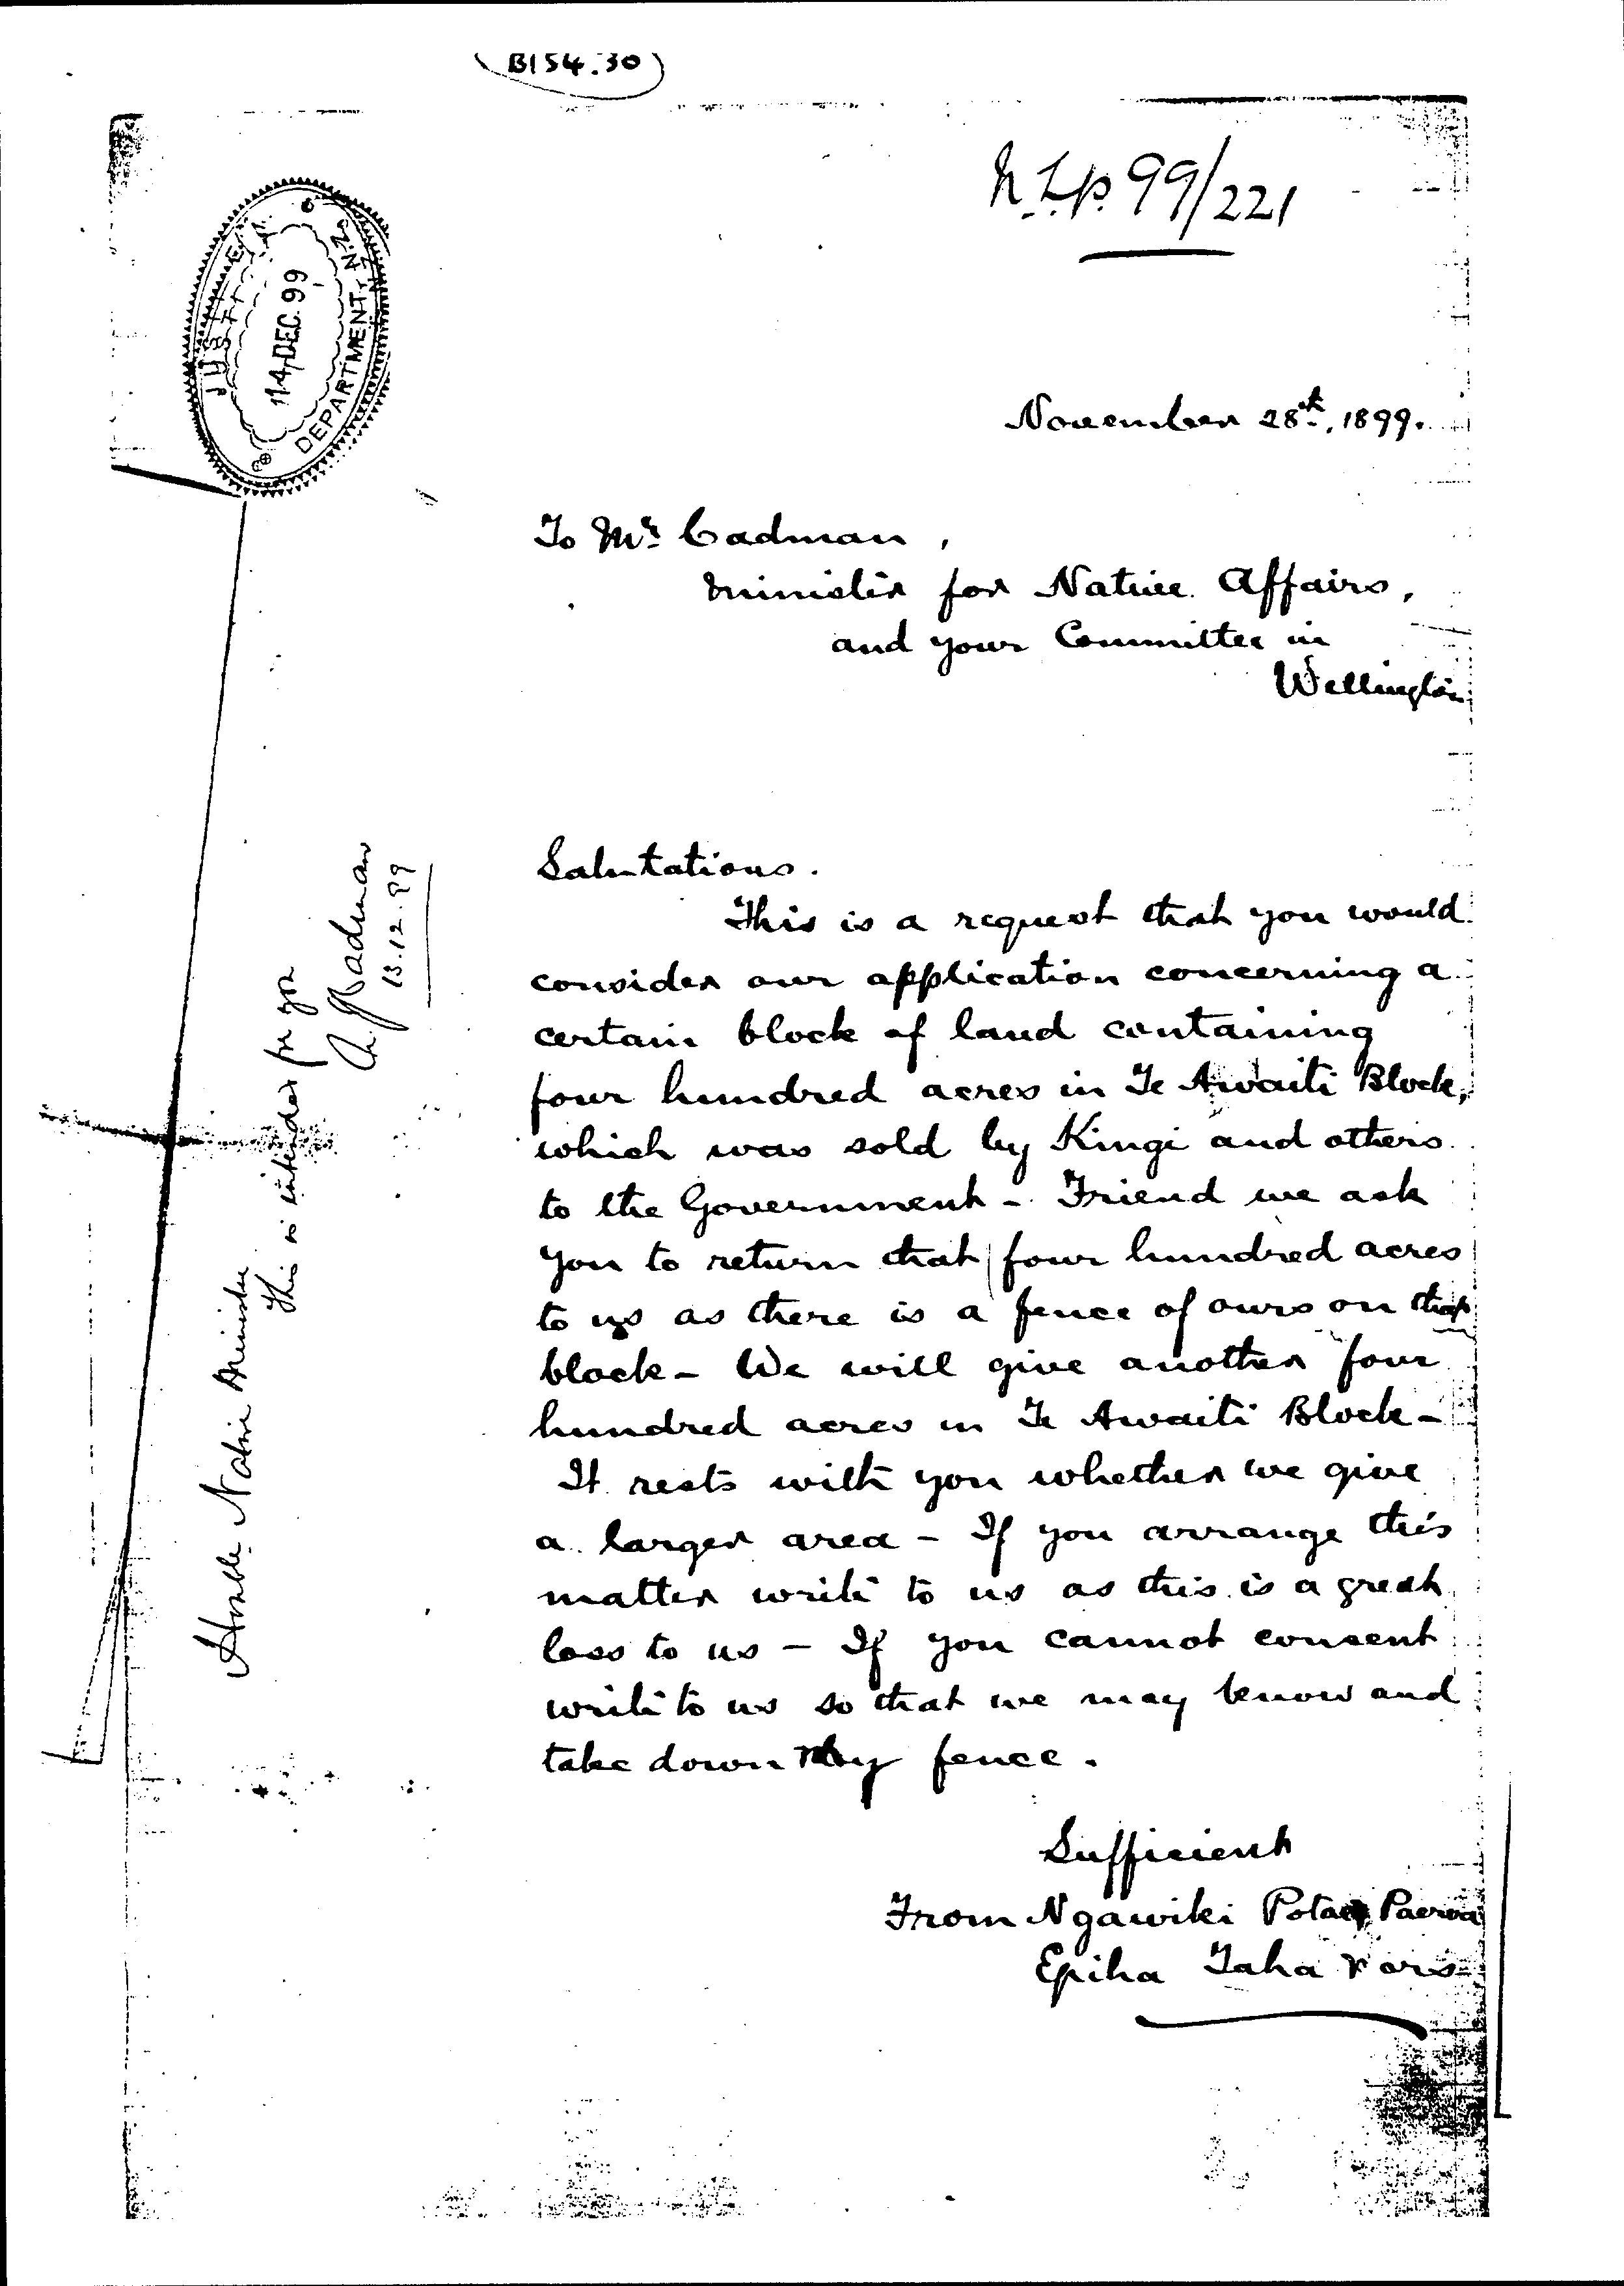 B154.30
N.L.P. 99/221
JUSTICE
14 DEC. 99
DEPARTMENT, N.Z.
November 28th, 1899.
To Mr. Cadman,
Minister for Native Affairs,
and your Committee in
Wellington
Salutations.
This is a request that you would
consider our application concerning a
certain block of land containing
four hundred acres in Te Awaiti Block,
which was sold by Kingi and others
to the Government - Friend we ask
you to return that four hundred acres
to us as there is a fence of ours on that
block - We will give another four
hundred acres in Te Awaiti Block -
It rests with you whether we give
a larger area - If you arrange this
matter write to us as this is a great
loss to us - If you cannot consent
write to us so that we may know and
take down my fence.
Sufficient
From Ngawiki Potae Paeroa
Epiha Taha & ors
Honble Native Minister
This is intended for you
A J Cadman
13.12.99